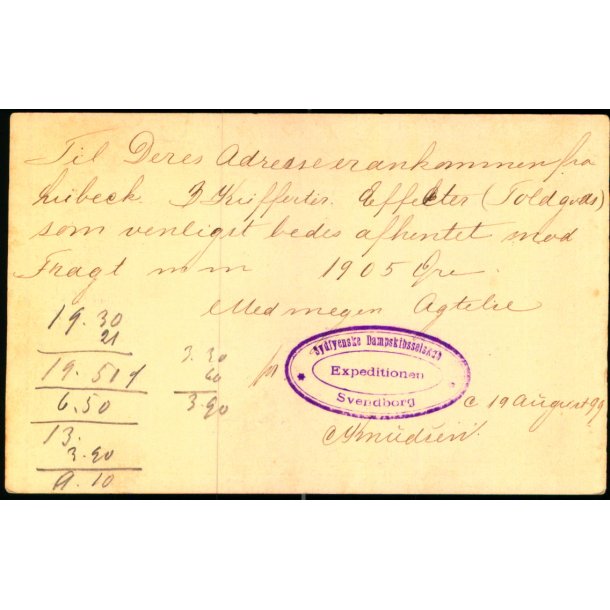 Til Deres Adresse er ankommen fra
Lübeck 3 Kufferter Effecter (Toldgods)
som venligst bedes afhentet mod
Fragt m m 1905 Øre.
Med megen Agtelse
19.30
21
19.51
6.50
13.
3.90
9.10
3.30
60
3.90
Sydfyenske Dampskibsselskab
Expeditionen
Svendborg
19 August 99
Knudsen